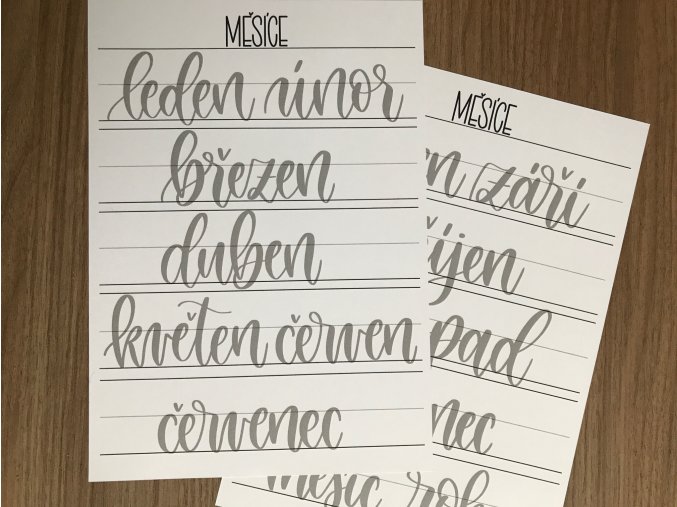 MĚSÍCE
leden únor
březen
duben
květen červen
červenec
MĚSÍCE
en září
íjen
pad
nec
měsíc rok